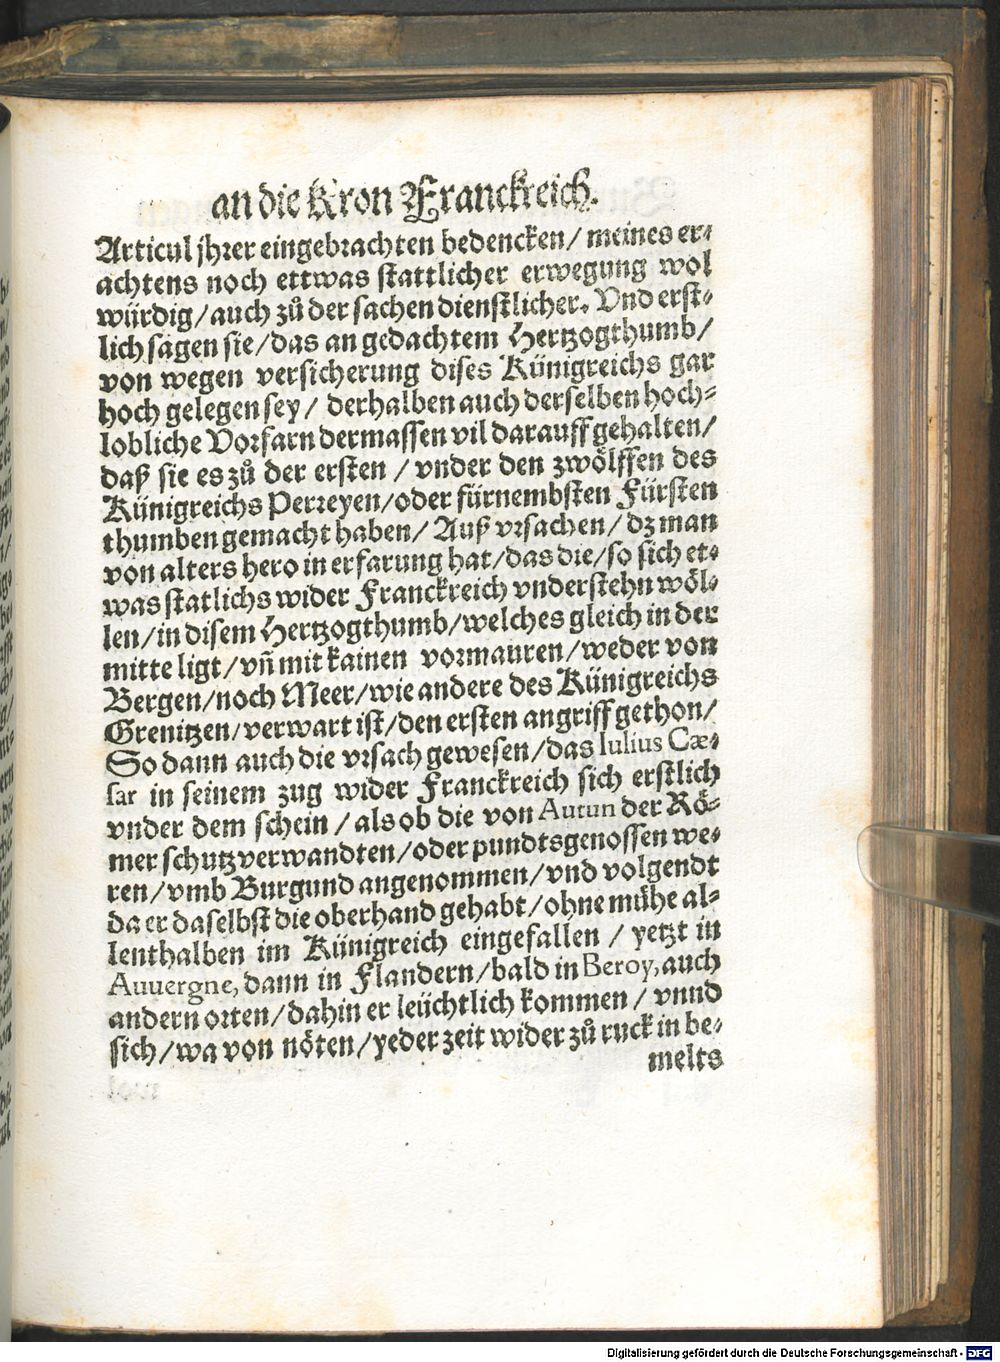 an die Kron Franckreich.
Articul jhrer eingebrachten bedencken/ meines er⸗
achtens noch ettwas stattlicher erwegung wol
würdig/ auch zů der sachen dienstlicher. Vnd erst⸗
lich sagen sie/ das an gedachtem Hertzogthumb/
von wegen versicherung dises Künigreichs gar
hoch gelegen sey/ derhalben auch derselben hoch⸗
lobliche Vorfarn dermassen vil darauff gehalten/
daß sie es zů der ersten / vnder den zwölffen des
Künigreichs Perreyen/ oder fürnembsten Fürsten
thumben gemacht haben/ Auß vrsachen/ dz man
von alters hero in erfarung hat/ das die/ so sich et⸗
was statlichs wider Franckreich vnderstehn wöl⸗
len/ in disem Hertzogthumb/ welches gleich in der
mitte ligt/ vñ mit kainen vormauren/ weder von
Bergen/ noch Meer/ wie andere des Künigreichs
Grenitzen/ verwart ist/ den ersten angriff gethon/
So dann auch die vrsach gewesen/ das Iulius Cæ⸗
sar in seinem zug wider Franckreich sich erstlich
vnder dem schein / als ob die von Autun der Rö⸗
mer schutzverwandten/ oder pundtsgenossen we⸗
ren/ vmb Burgund angenommen/ vnd volgendt
da er daselbst die oberhand gehabt/ ohne mühe al⸗
lenthalben im Künigreich eingefallen / yetzt in
Auuergne, dann in Flandern/ bald in Beroy, auch
andern orten/ dahin er leüchtlich kommen / vnnd
sich/ wa von nöten/ yeder zeit wider zů ruck in be⸗
melts
Digitalisierung gefördert durch die Deutsche Forschungsgemeinschaft - DFG